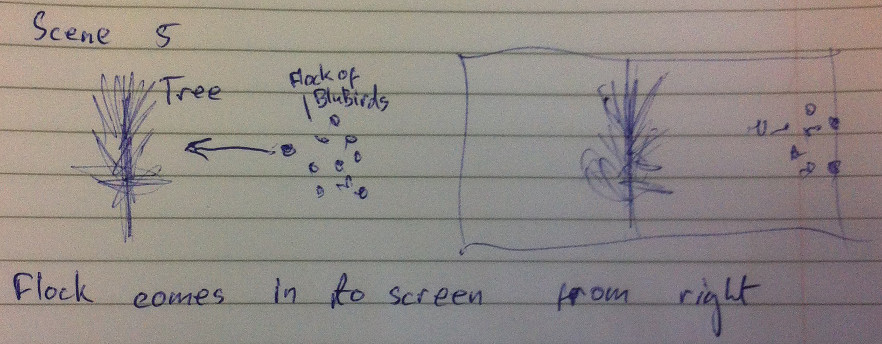 Scene 5
Tree
Flock of
BluBirds
Flock comes in to screen from right